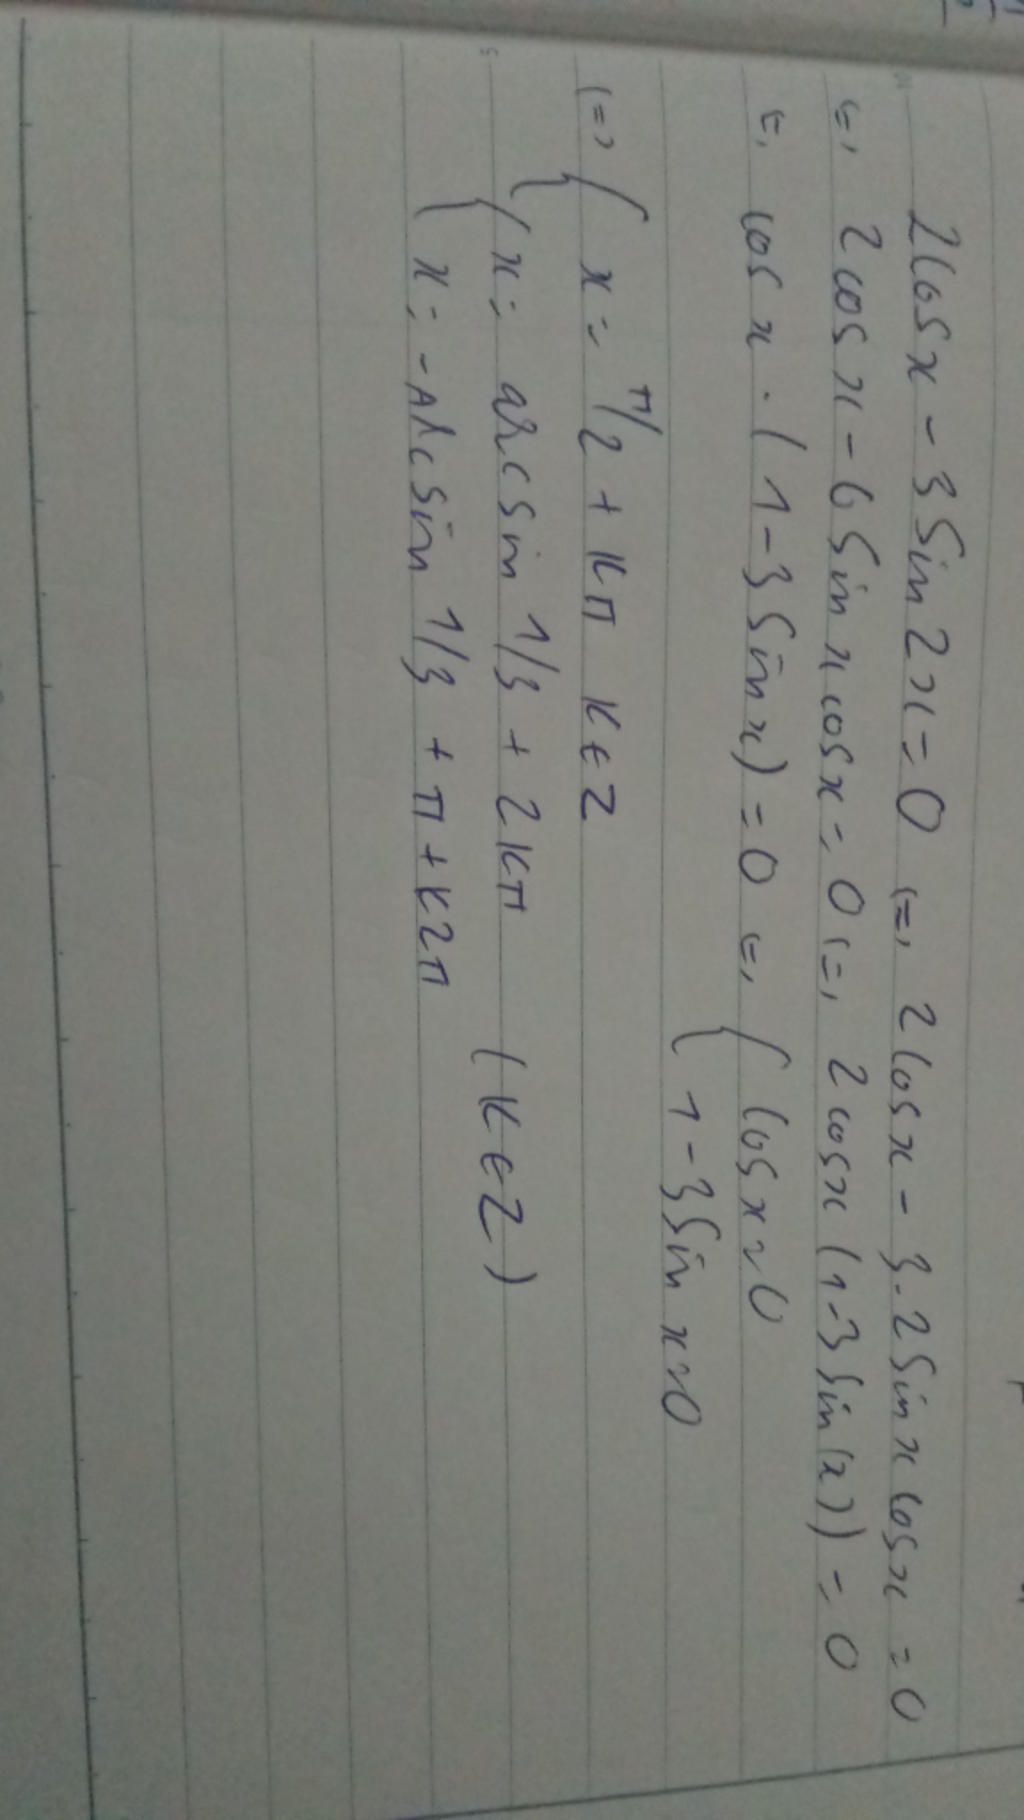 2cosx - 3sin2x = 0 (=, 2cosx - 3.2sinxcosx = 0
(=, 2cosx - 6sinxcosx = 0 (=, 2cosx(1-3sin(x)) = 0
(=, cosx.(1-3sinx) = 0 (=, { cosx=0
1-3sinx=0
(=> { x = π/2 + kπ k∈Z
{ x = arcsin 1/3 + 2kπ (k∈Z)
x = -Arcsin 1/3 + π + k2π